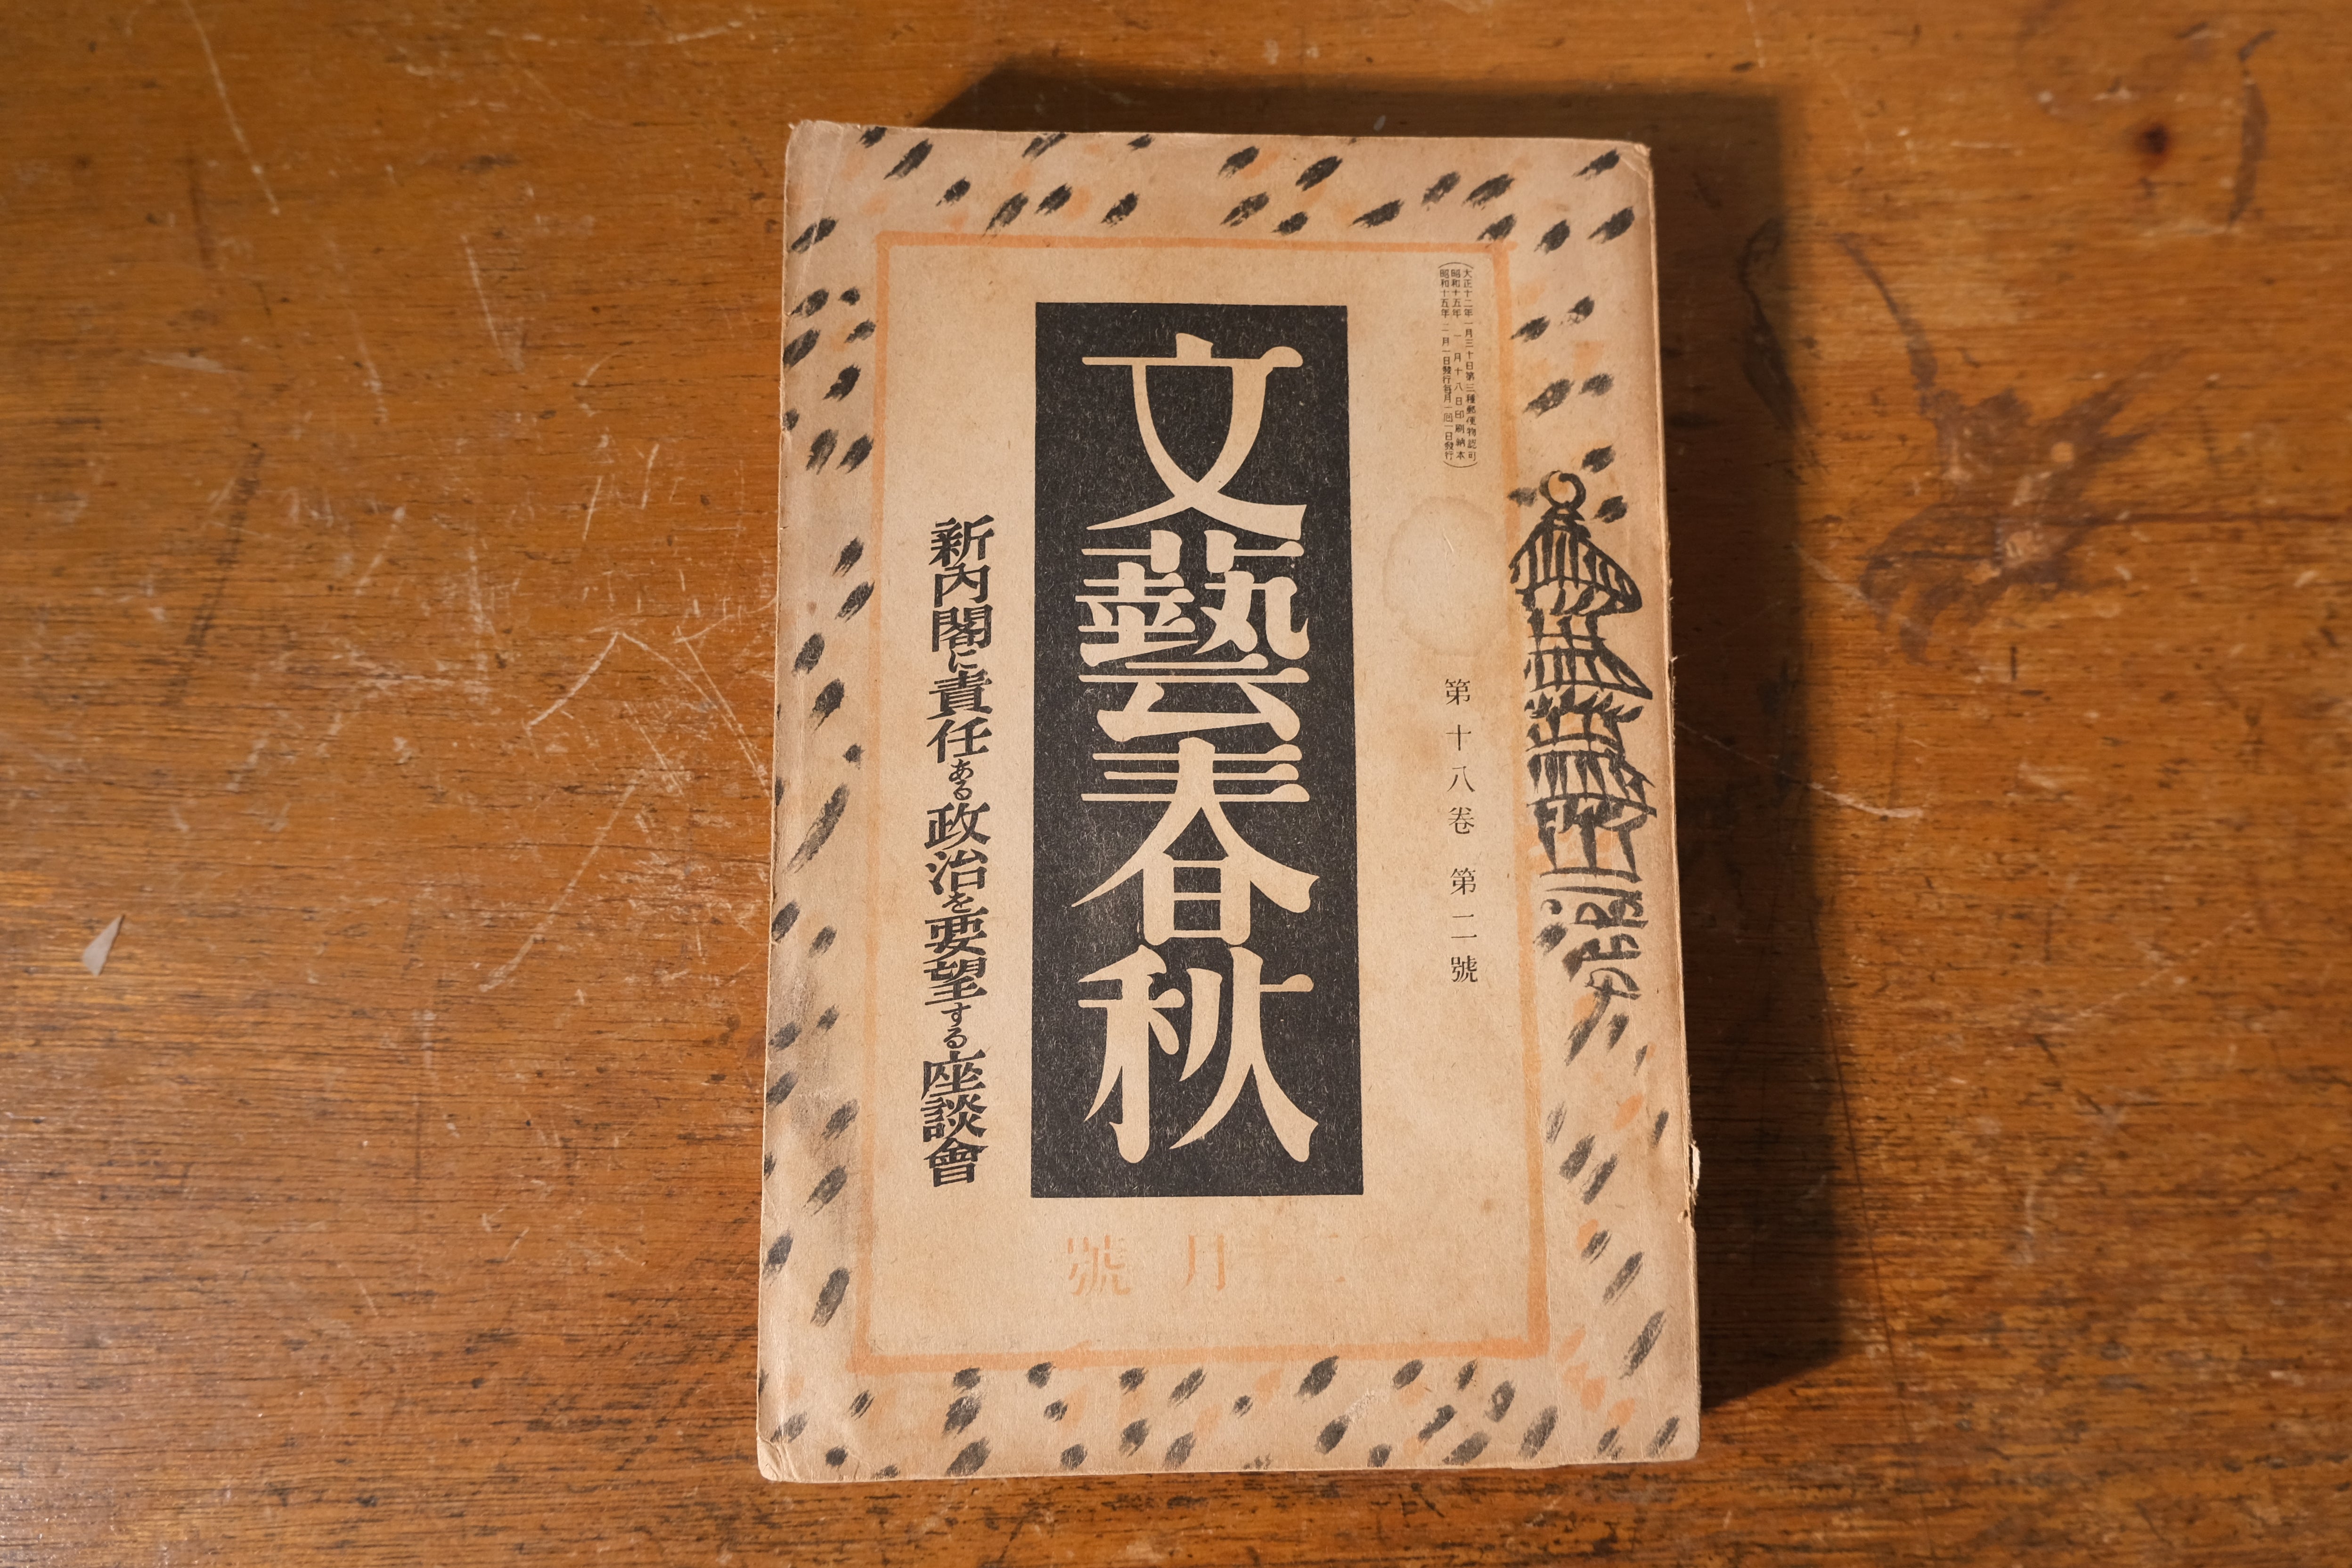 (大正十二年一月三十日第三種郵便物認可
昭和十五年 一月十八日印刷納本
昭和十五年 二月一日發行每月一回一日發行)
第十八卷 第二號
文藝春秋
新內閣に責任ある政治を要望する座談會
號月二